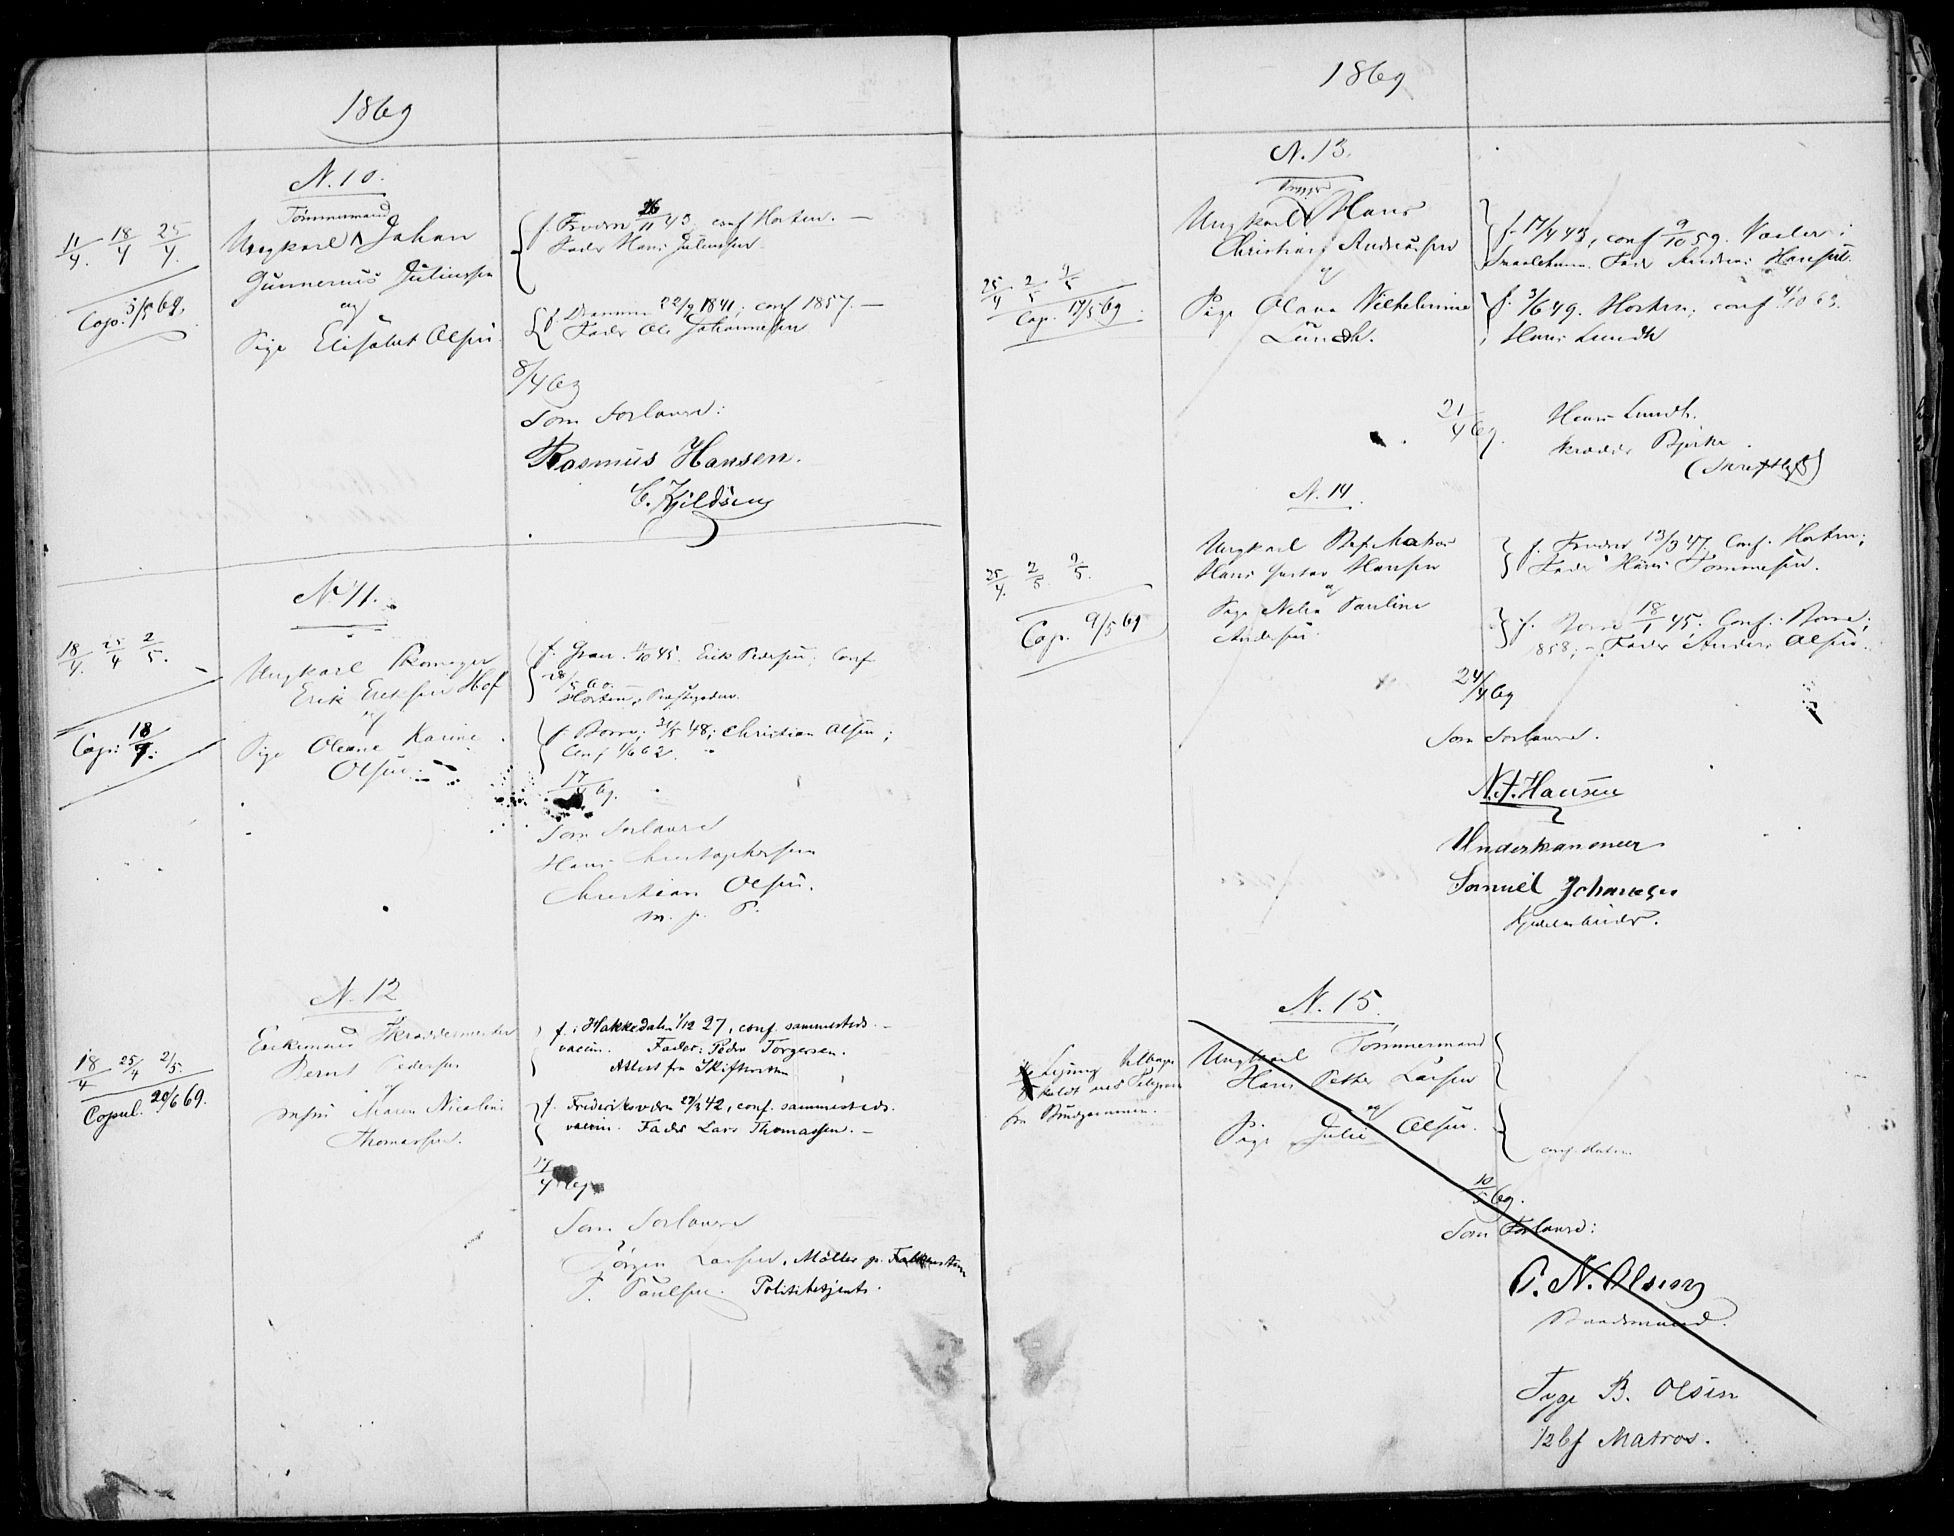 1869
N. 10.
Tømmermand
11/4. 18/4 25/4.
Ungkarl Johan
Gunnerius Juliussen
og
Pige Elisabet Olsen.
Cop. 3/5 69.
f. Horten 26/11 43, conf Horten. —
Fader Hans Juliussen
f. Drammen 22/2 1841; conf 1857. —
Fader Ole Johannesen
8/4 69
Som Forlovere:
Rasmus Hansen.
C. Kjeldsen
N. 11.
18/4. 25/4 2/5.
Ungkarl Skomager
Erik Eriksen Hof
og
Pige Oleane Karine
Olsen.
Cap: 18/7.
f. Gran. /10 45. Erik Pedersen; Conf
Horten,
f. Borre, 31/5 48; Christian Olsen;
Conf 1/6 62.
17/4 69.
Som Forlovere
Hans Christophersen
Christian Olsen.
m. p. P.
N. 12
18/4 25/4 2/5.
Enkemand Skræddermester
Bernt Pedersen
og
Maren Nicoline
Thomassen.
Copul. 20/6 69.
f. i Hakkedalen 1/12 27, conf. sammesteds. —
vaccin. Fader: Peder Torgersen.
Attest fra Skifteretten
f. Frederiksværn 29/3 42, conf. sammesteds.
vaccin. Fader Lars Thomassen. —
17/4 69
Som Forlovere
Jörgen Larsen, Møller p. Falkensten
P. Paulsen. Politibetjent.
1869
N. 13.
25/4 2/5 9/5
Ungkarl Hans
Christian Andreassen
og
Pige Olava Vilhelmine
Lundh.
Cap. 17/5 69
f. 17/4 43, conf 9/10 59. Vaaler i
Smaalehnene. Fader Andreas Hansen.
f. 3/6 49. Horten; conf 4/10 63.
Hans Lundh
21/4 69.
Hans Lundh.
Skræder Bjerke
(Skriftligt)
N. 14.
25/4. 2/5. 9/5.
Ungkarl Bef. Matros
Hans Gustav Hansen
og
Pige Nelia Pauline
Andersen.
Cop. 9/5 69
f. Horten 13/3 47. Conf. Horten;
Fader Hans Tommesen.
f. Borre 18/1 45. Conf. Borre;
858; — Fader Anders Olsen.
24/4 69
Som Forlovere.
N. J. Hansen
Underkanoneer
Samuel Johanesen
Kjedelarbeider.
N. 15.
Lysning tilbage-
kaldt ved Telegram
fra Brudgommen. —
Ungkarl Tømmermand
Hans Petter Larsen
og
Pige Julie Olsen.
conf. Horten.
10/5 69.
Som Forlovere:
C. N. Olsen
Baadsmand.
Tyge B. Olsen
1/2 bf Matros.